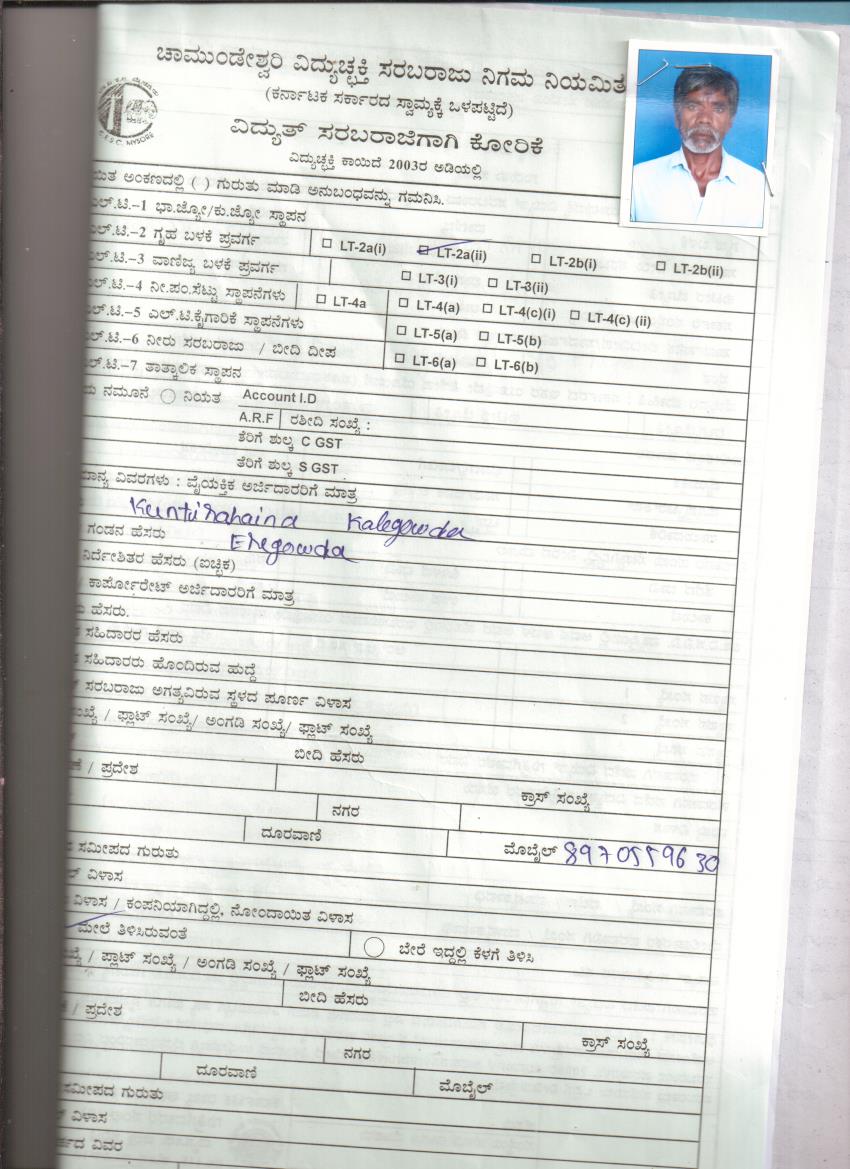 ಚಾಮುಂಡೇಶ್ವರಿ ವಿದ್ಯುಚ್ಛಕ್ತಿ ಸರಬರಾಜು ನಿಗಮ ನಿಯಮಿತ
(ಕರ್ನಾಟಕ ಸರ್ಕಾರದ ಸ್ವಾಮ್ಯಕ್ಕೆ ಒಳಪಟ್ಟಿದೆ)
ವಿದ್ಯುತ್ ಸರಬರಾಜಿಗಾಗಿ ಕೋರಿಕೆ
ವಿದ್ಯುಚ್ಛಕ್ತಿ ಕಾಯಿದೆ 2003ರ ಅಡಿಯಲ್ಲಿ
ಅಂಕಣದಲ್ಲಿ ( ) ಗುರುತು ಮಾಡಿ ಅನುಬಂಧವನ್ನು ಗಮನಿಸಿ.
ಎಲ್.ಟಿ.–1 ಭಾ.ಜ್ಯೋ/ಕು.ಜ್ಯೋ ಸ್ಥಾಪನ
ಎಲ್.ಟಿ.–2 ಗೃಹ ಬಳಕೆ ಪ್ರವರ್ಗ LT-2a(i) LT-2a(ii) LT-2b(i) LT-2b(ii)
ಎಲ್.ಟಿ.–3 ವಾಣಿಜ್ಯ ಬಳಕೆ ಪ್ರವರ್ಗ LT-3(i) LT-3(ii)
ಎಲ್.ಟಿ.–4 ನೀ.ಪಂ.ಸೆಟ್ಟು ಸ್ಥಾಪನೆಗಳು LT-4a LT-4(a) LT-4(c)(i) LT-4(c) (ii)
ಎಲ್.ಟಿ.–5 ಎಲ್.ಟಿ.ಕೈಗಾರಿಕೆ ಸ್ಥಾಪನೆಗಳು LT-5(a) LT-5(b)
ಎಲ್.ಟಿ.–6 ನೀರು ಸರಬರಾಜು / ಬೀದಿ ದೀಪ LT-6(a) LT-6(b)
ಎಲ್.ಟಿ.–7 ತಾತ್ಕಾಲಿಕ ಸ್ಥಾಪನ
ನಮೂನೆ ನಿಯತ Account I.D
A.R.F ರಶೀದಿ ಸಂಖ್ಯೆ :
ತೆರಿಗೆ ಶುಲ್ಕ C GST
ತೆರಿಗೆ ಶುಲ್ಕ S GST
ವಿವರಗಳು : ವೈಯಕ್ತಿಕ ಅರ್ಜಿದಾರರಿಗೆ ಮಾತ್ರ
Kalegowda
ಗಂಡನ ಹೆಸರು Eregowda
ನಿರ್ದೇಶಿತರ ಹೆಸರು (ಐಚ್ಛಿಕ)
/ ಕಾರ್ಪೋರೇಟ್ ಅರ್ಜಿದಾರರಿಗೆ ಮಾತ್ರ
ಹೆಸರು.
ಸಹಿದಾರರ ಹೆಸರು
ಸಹಿದಾರರು ಹೊಂದಿರುವ ಹುದ್ದೆ
ಸರಬರಾಜು ಅಗತ್ಯವಿರುವ ಸ್ಥಳದ ಪೂರ್ಣ ವಿಳಾಸ
/ ಫ್ಲಾಟ್ ಸಂಖ್ಯೆ/ ಅಂಗಡಿ ಸಂಖ್ಯೆ/ ಫ್ಲಾಟ್ ಸಂಖ್ಯೆ
ಬೀದಿ ಹೆಸರು
/ ಪ್ರದೇಶ
ಕ್ರಾಸ್ ಸಂಖ್ಯೆ
ನಗರ
ದೂರವಾಣಿ ಮೊಬೈಲ್ 8970559630
ಸಮೀಪದ ಗುರುತು
ವಿಳಾಸ
ವಿಳಾಸ / ಕಂಪನಿಯಾಗಿದ್ದಲ್ಲಿ, ನೋಂದಾಯಿತ ವಿಳಾಸ
ಮೇಲೆ ತಿಳಿಸಿರುವಂತೆ ಬೇರೆ ಇದ್ದಲ್ಲಿ ಕೆಳಗೆ ತಿಳಿಸಿ
/ ಪ್ಲಾಟ್ ಸಂಖ್ಯೆ / ಅಂಗಡಿ ಸಂಖ್ಯೆ / ಫ್ಲಾಟ್ ಸಂಖ್ಯೆ
ಬೀದಿ ಹೆಸರು
/ ಪ್ರದೇಶ
ಕ್ರಾಸ್ ಸಂಖ್ಯೆ
ನಗರ
ದೂರವಾಣಿ ಮೊಬೈಲ್
ಸಮೀಪದ ಗುರುತು
ವಿಳಾಸ
ವಿವರ